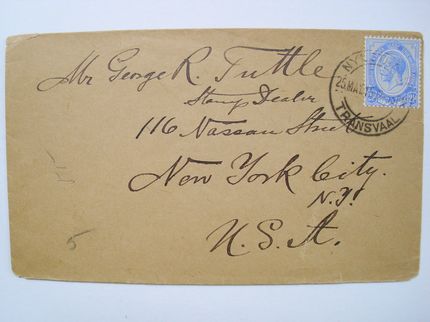 Mr George R. Tuttle
Stamp Dealer
116 Nassau Street
New York City.
N.Y.
U.S.A.
TRANSVAAL
5